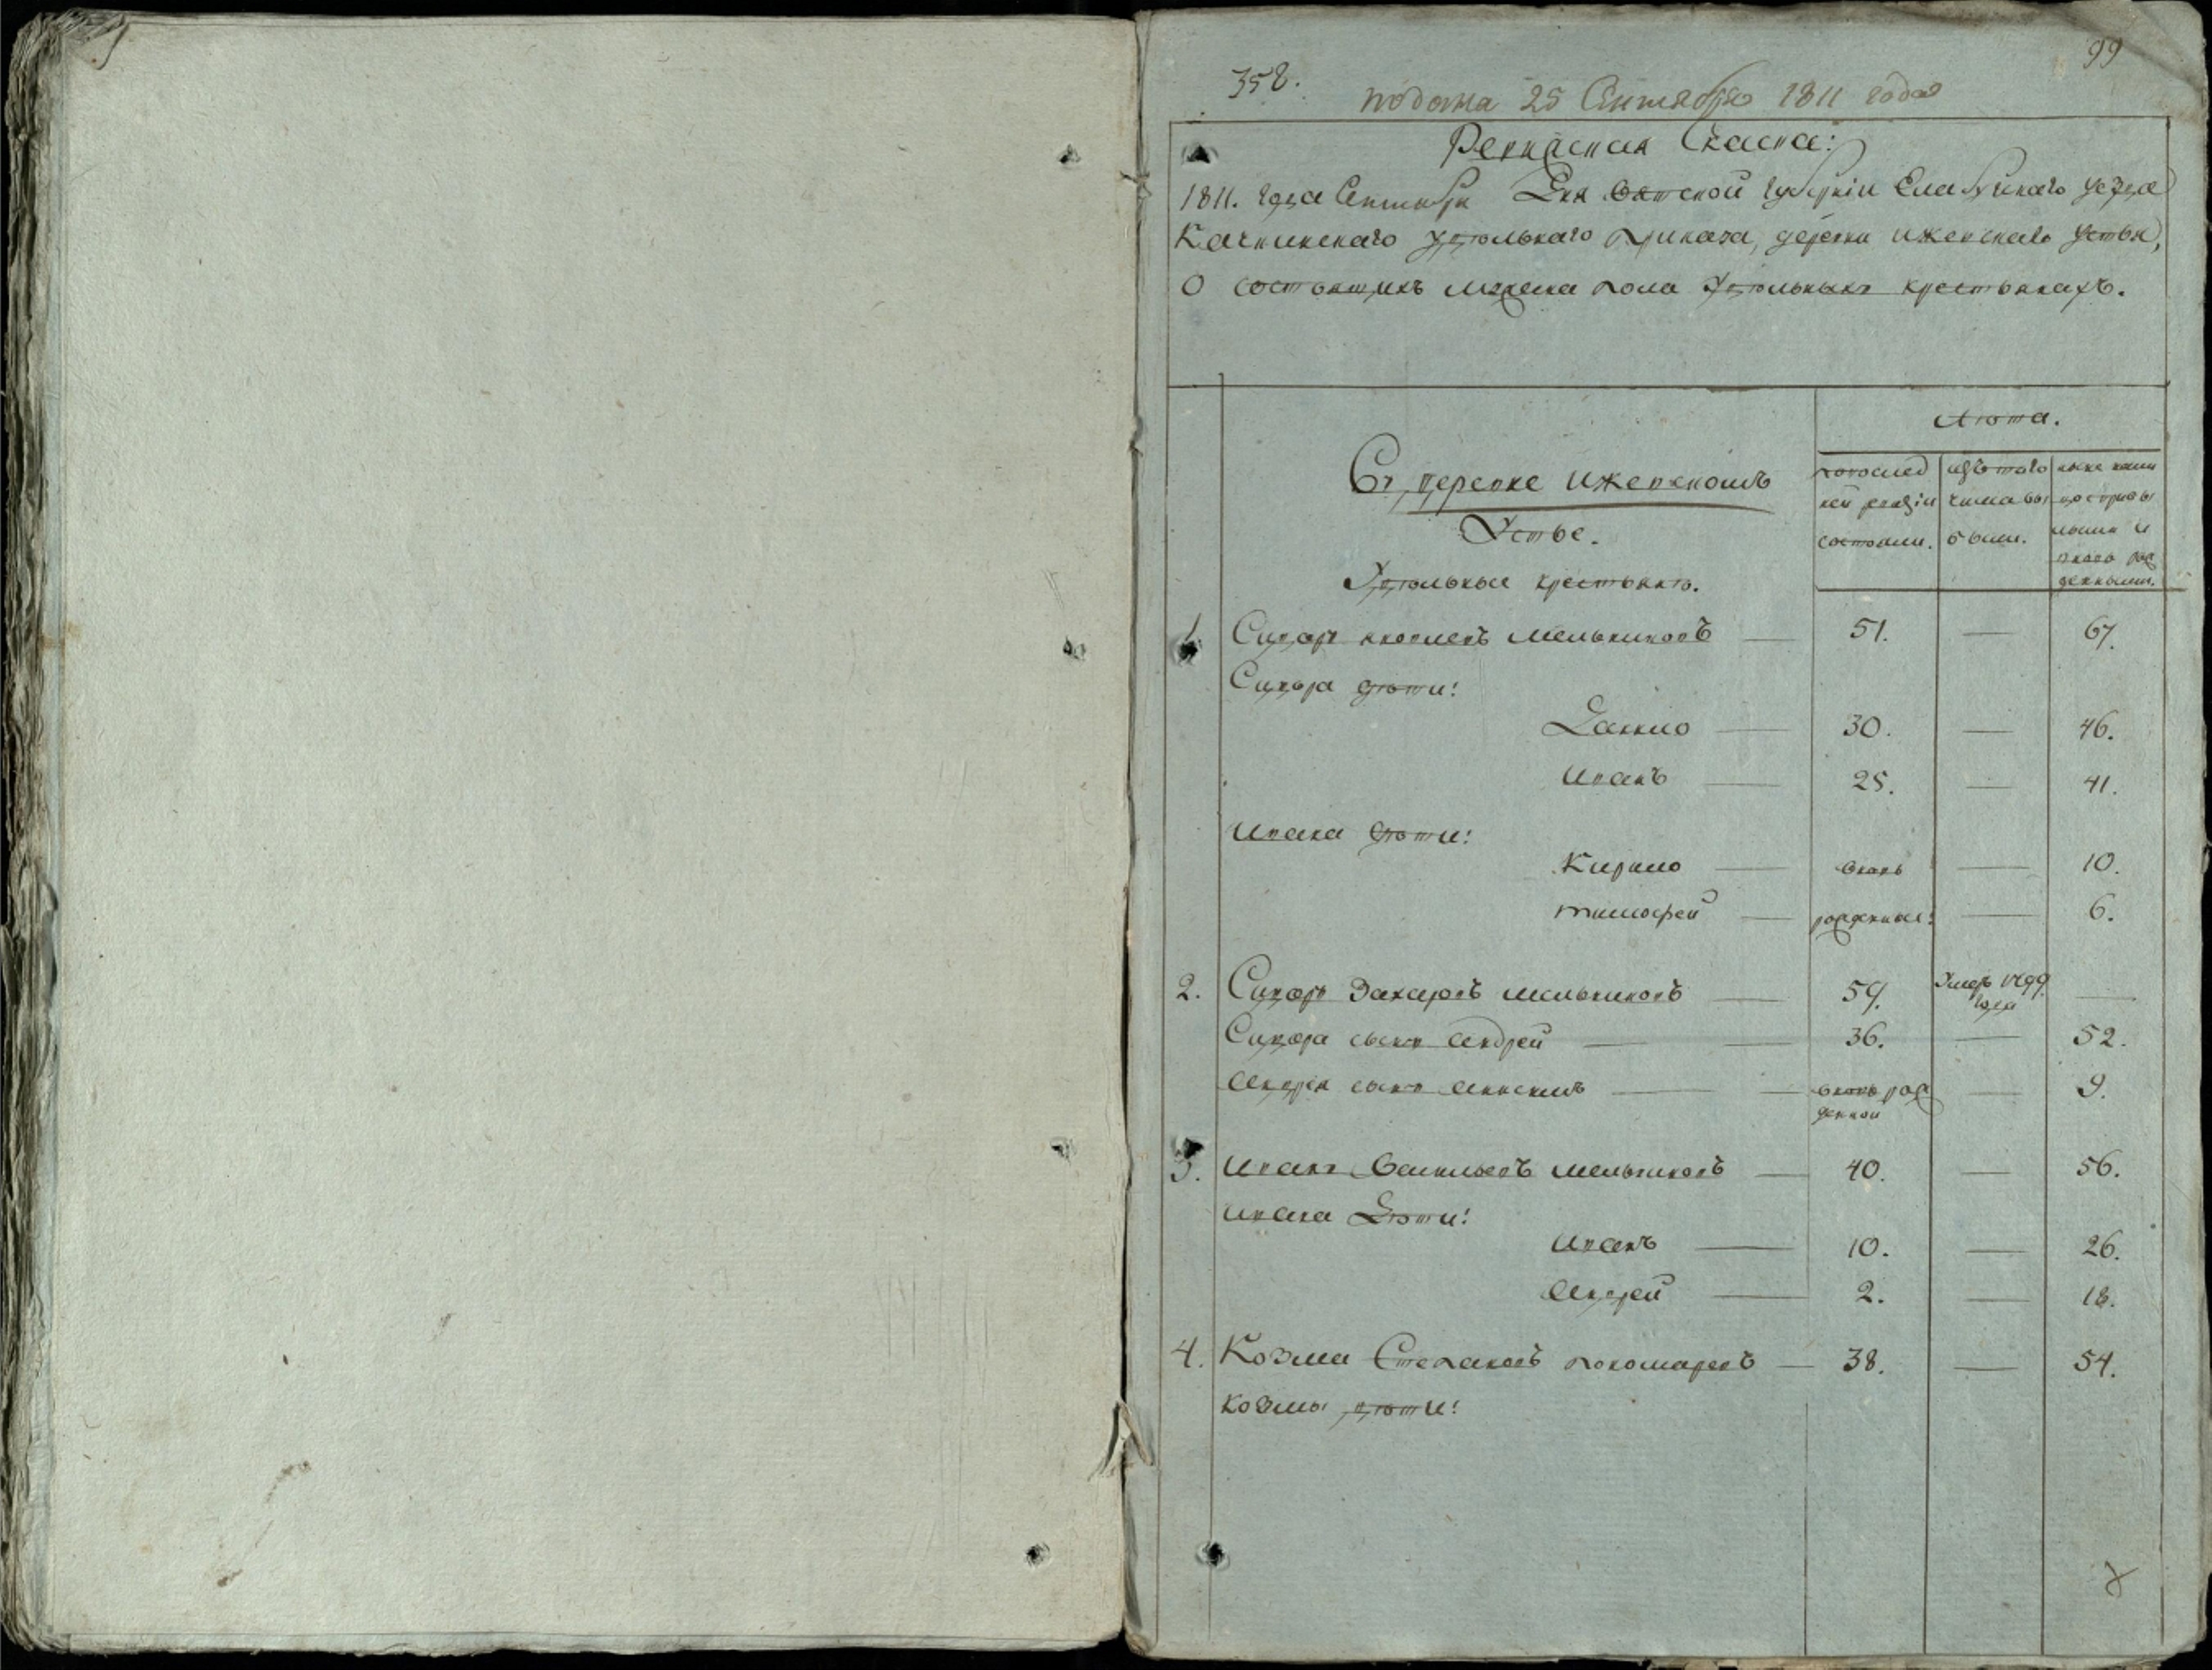 99
358.
подана 25 Сентября 1811 года
Ревизская Скаска:
1811. года Сентября Дня Вятской губернiи Елабугскаго уезда
Качкинскаго удѣльнаго приказа, деревни Ижевскаго Устья,
О состоящихъ мужеска пола Удѣльныхъ крестьянахъ.
Лѣта.
Въ деревне Ижевскомъ
Устье.
Удѣльныя крестьянѣ.
попослед
ней ревизiи
состояли.
изъ того
числа вы
были.
ныне налицо
прибы
лыми и
вновь рож
денными.
1. Сидоръ Яковлевъ Мельниковъ — 51. — 67.
Сидора дѣти:
Данило — 30. — 46.
Иванъ — 25. — 41.
Ивана дѣти:
Кирило — вновь — 10.
Тимофей — рожденные: — 6.
2. Сидоръ Захаровъ Мельниковъ — 59. Умеръ 1799. года —
Сидора сынъ Андрей — 36. — 52.
Андрея сынъ — вновь рож
денной — 9.
3. Иванъ Васильевъ Мельниковъ — 40. — 56.
Ивана Дѣти:
Иванъ — 10. — 26.
Андрей — 2. — 18.
4. Козма Степановъ Пономаревъ — 38. — 54.
Козмы дѣти: